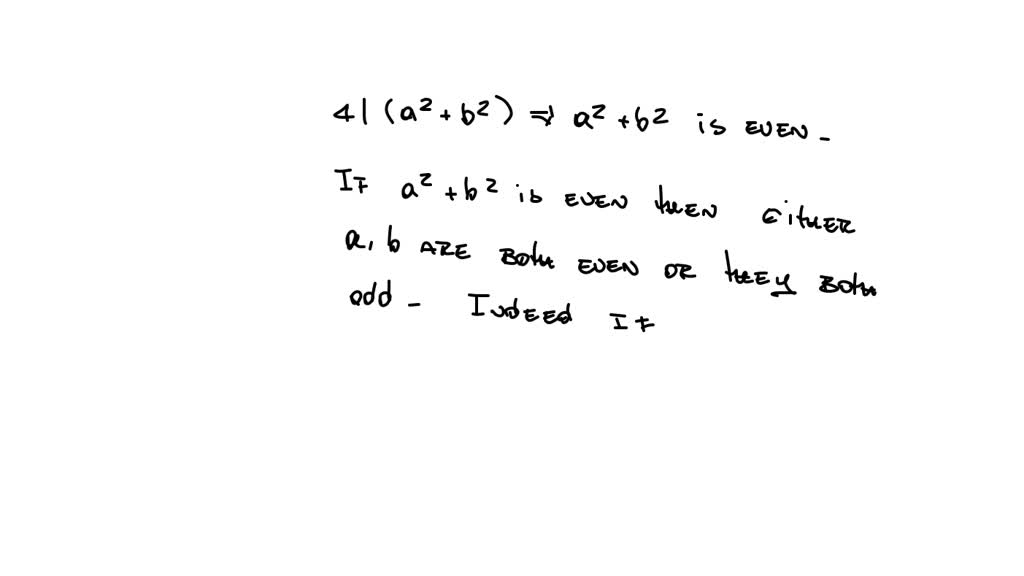 4 | (a² + b²) ⇒ a² + b² is EVEN -
IF a² + b² is EVEN then either
a, b ARE Both EVEN OR they Both
odd - Indeed IF